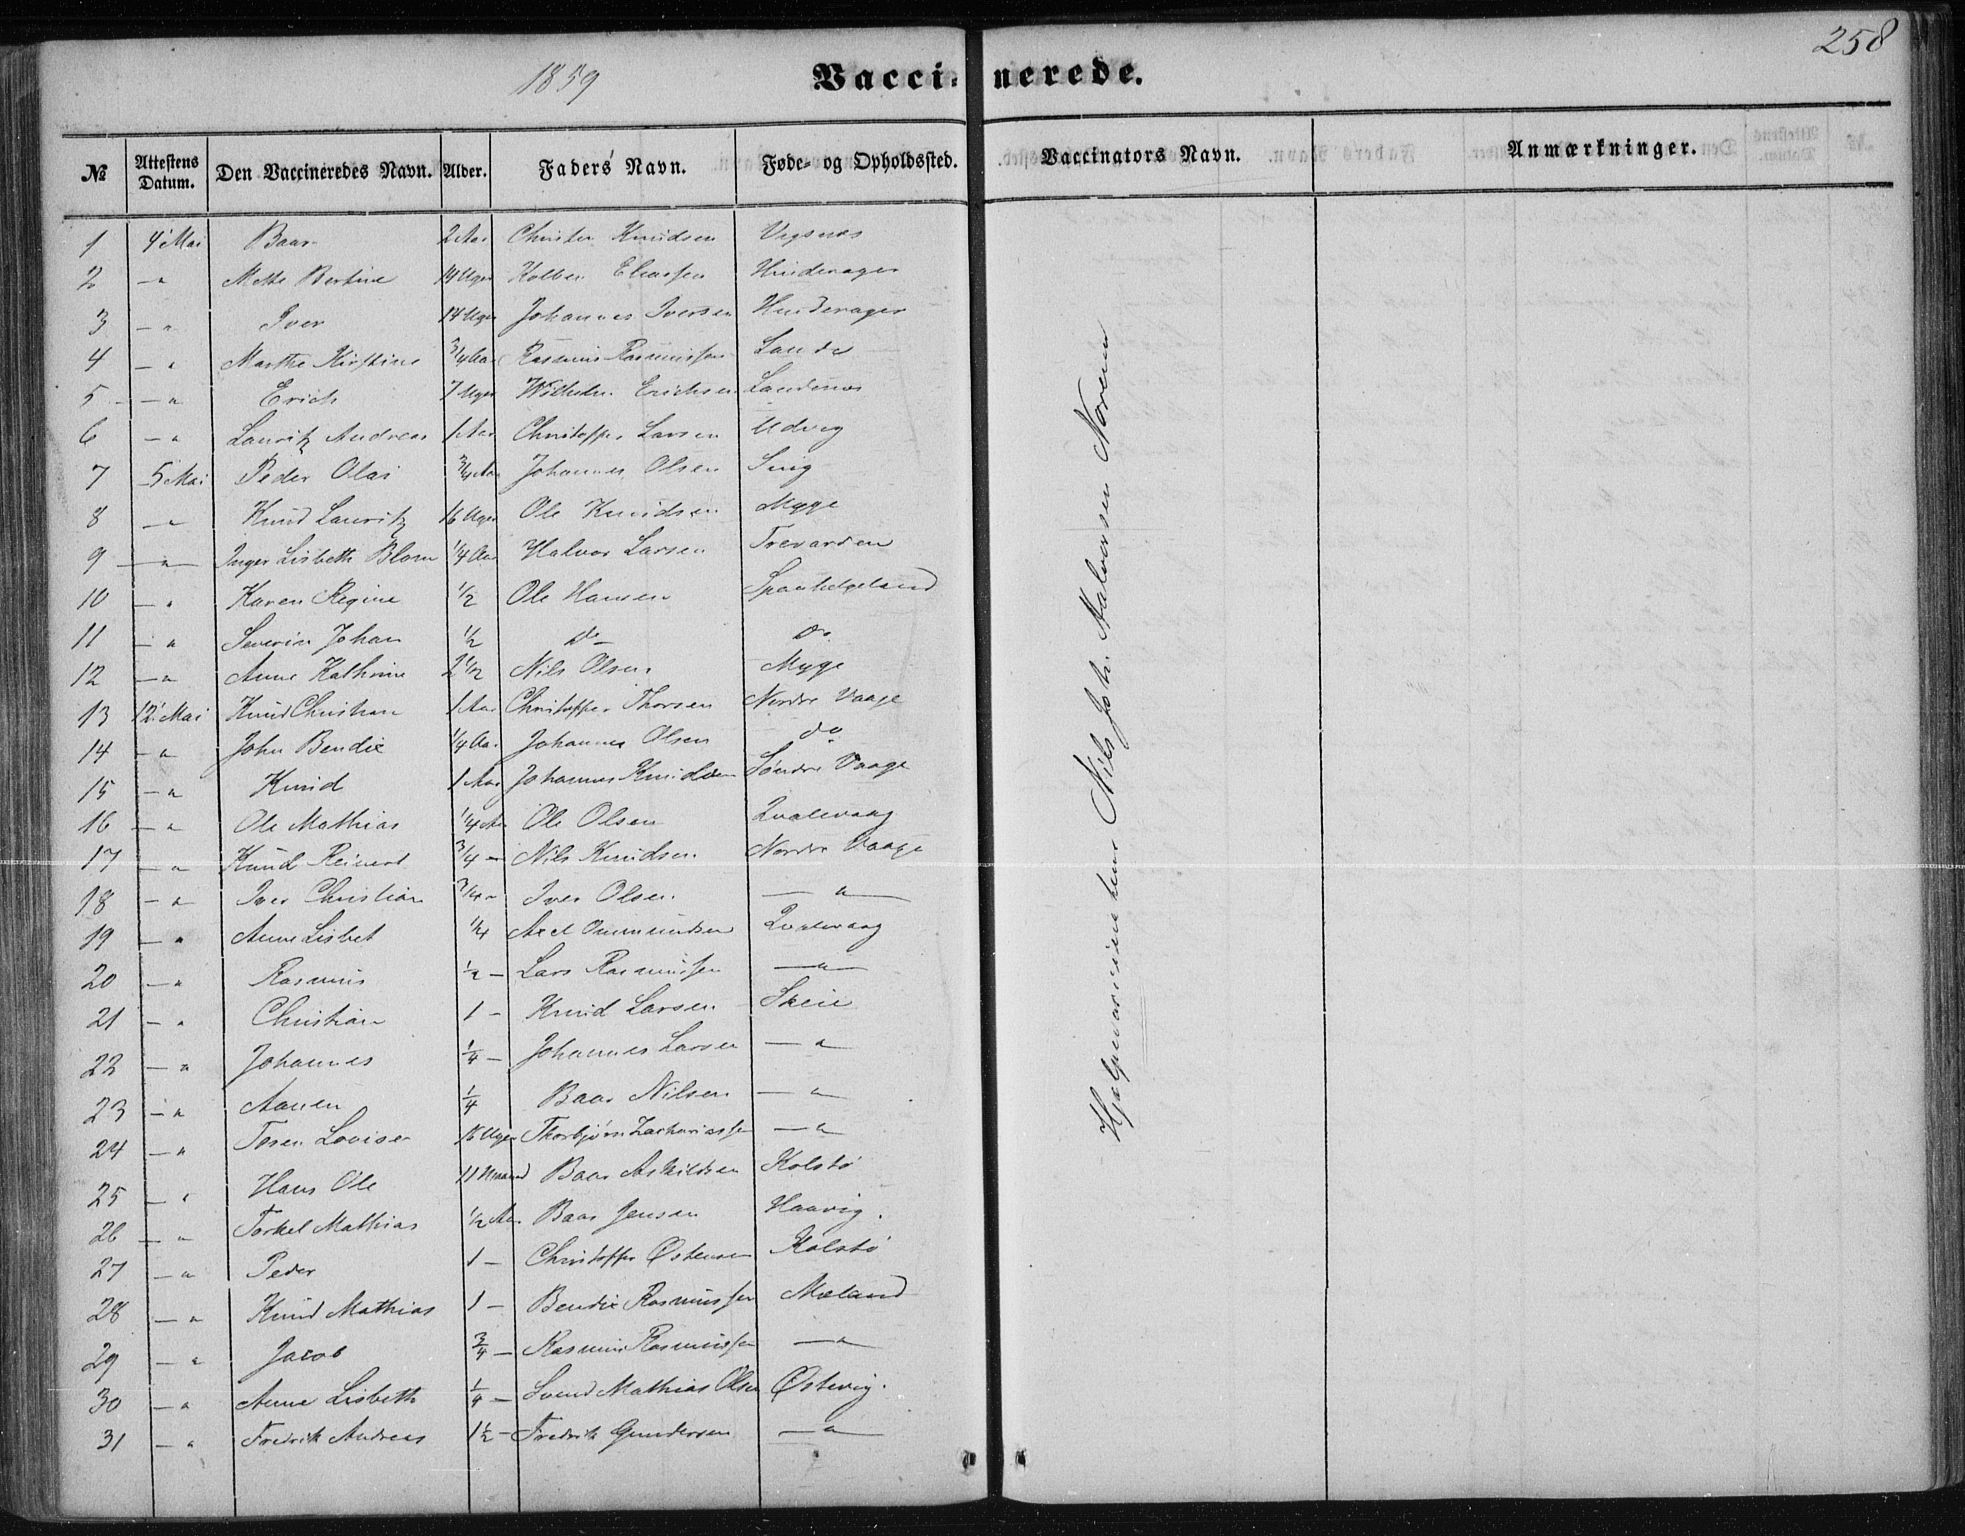 258
1859 Vaccinerede.
№ Attestens Datum. Den Vaccineredes Navn. Alder. Faders Navn. Føde- og Opholdssted. Vaccinators Navn. Anmærkninger.
1 4' Mai Baar 2 Aar Christen Knudsen Vegsnes
2 — " Mette Bertine 14 Uger Kolben Eliassen Hinderager
3 — " Iver 14 Uger Johannes Iversen Hinderager
4 — " Marthe Kirstine 3/4 Aar Rasmus Rasmussen Lande
5 — " Erich 7 Uger Wilhelm Erichsen Landenes
6 — " Lauritz Andreas 1 Aar Christopher Larsen Udvig
7 5 Mai Peder Olai 3/4 Aar Johannes Olsen
8 — " Knud Lauritz 16 Uger Ole Knudsen Myge
9 — " Inger Lisbeth Blom 1/4 Aar Halvor Larsen Torvarden
10 — " Karen Regine 1/2 Ole Hansen Spanhelgeland
11 — " Severin Johan 1/2 do do
12 — " Anne Kathrine 2 1/2 Nils Olsen Myge
13 12' Mai Knud Christian 1 Aar Christopher Thorsen Nordre Vaage
14 — " John Bendix 1/4 Aar Johannes Olsen do
15 — " Knud 1 Aar Johannes Knudsen Søndre Vaage
16 — " Ole Mathias 1/4 Aar Ole Olsen Qvalevaag
17 — " Knud Reinert 3/4 — Nils Knudsen Nordre Vaage
18 — " Iver Christian 3/4 — Iver Olsen — " —
19 — " Anne Lisbet 1/4 Axel Ommundsen Qvalevaag
20 — " Rasmus 1/2 — Lars Rasmussen — " —
21 — " Christian 1 — Knud Larsen Skeie
22 — " Johannes 1/4 — Johannes Larsen — "
23 — " Aanen 1/4 Baar Nilsen — "
24 — " Toren Lovise 16 Uger Thorbjørn Zachariassen — "
25 — " Hans Ole 11 Baar Askildsen Kolstø
26 — " Torkel Mathias 1/2 Aar Baar Jensen Haavig.
27 — " Peder 1 — Christopher Østensen Kolstø
28 — " Knud Mathias 1 — Bendix Rasmussen Mæland
29 — " Jacob 3/4 — Rasmus Rasmussen — "
30 — " Anne Lisbeth 1/4 — Svend Mathias Olsen Østevig.
31 — " Fredrik Andreas 1 1/2 — Fredrik Gundersen — " —
Hjelpevaccinateur Nils Joh. Halvorsen Norem